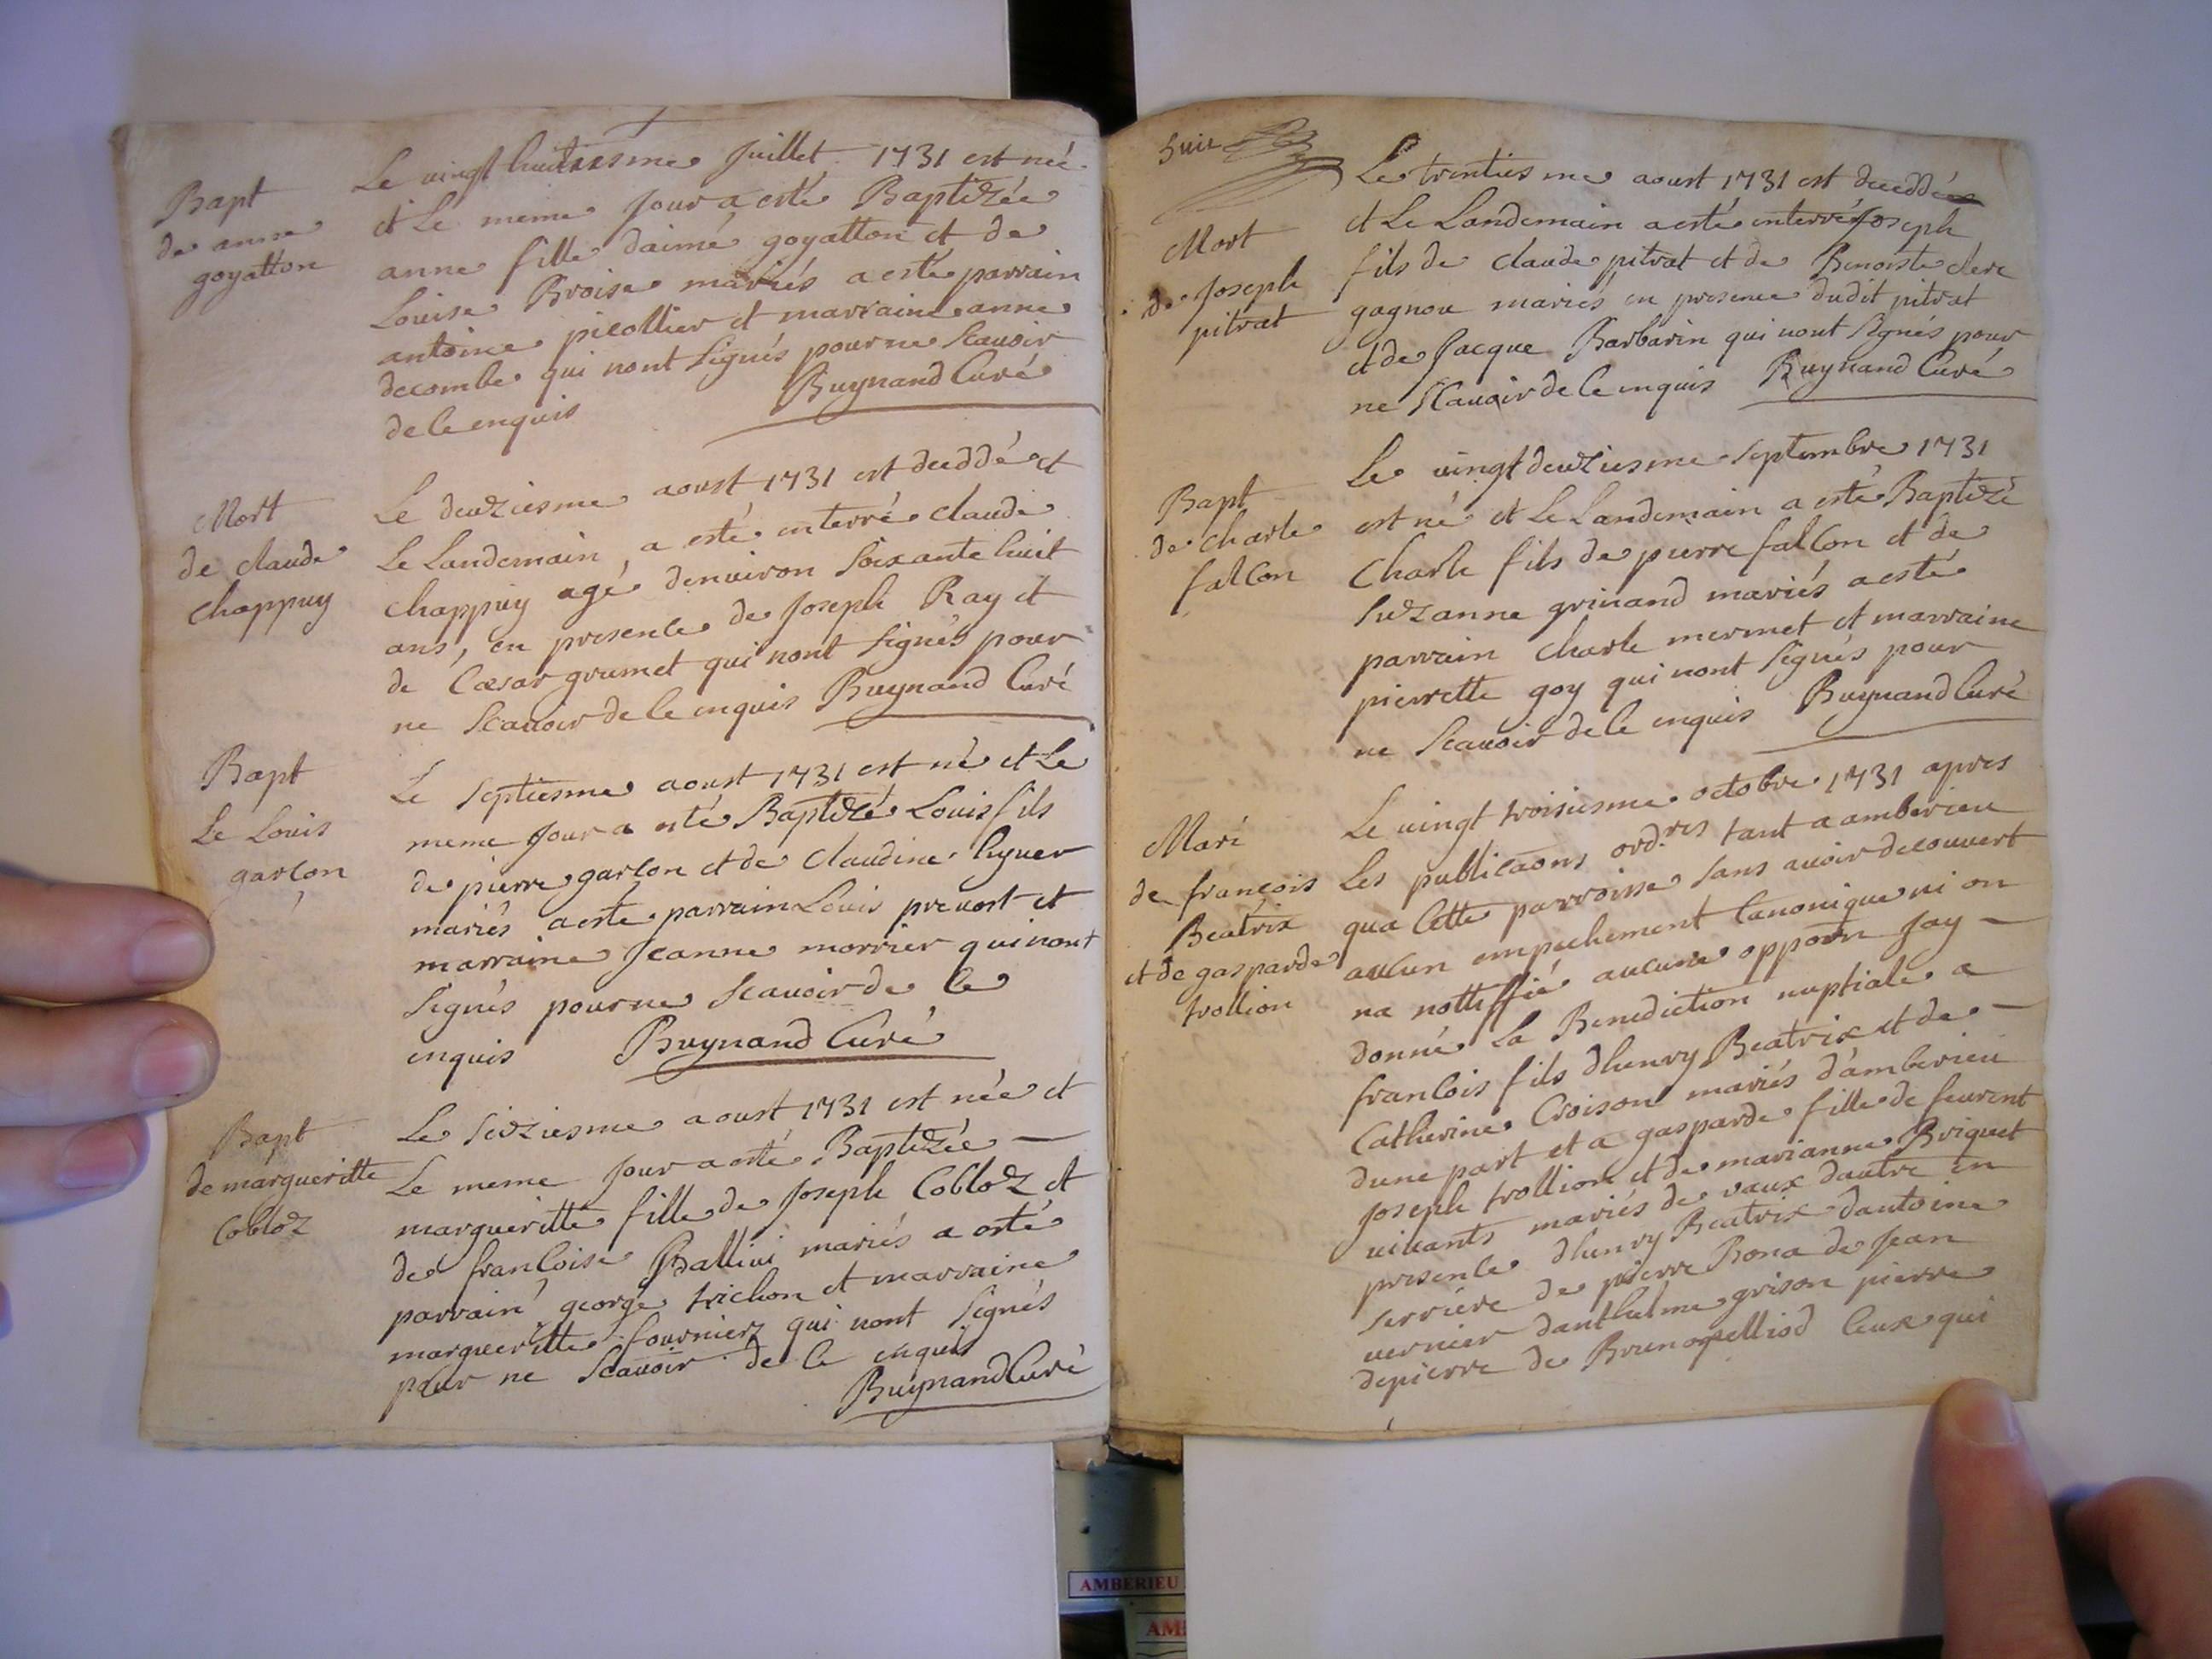 Bapt
de anne
goyatton
Le vingt huitiesme Juillet 1731 est née
et Le meme Jour a esté Baptizée
anne fille daimé goyatton et de
Louise Broise mariés a esté parrain
antoine picollier et marraine anne
decombe qui nont signés pour ne scavoir
de ce enquis Buynand Curé
Mort
de claude
chappuy
Le deuziesme aoust 1731 est deceddé et
Le Landemain a esté enterré claude
chappuy agé denviron soixante huit
ans, en presence de Joseph Ray et
de Cæsar grumet qui nont signés pour
ne scavoir de ce enquis Buynand Curé
Bapt
De Louis
garcon
Le septiesme aoust 1731 est né et Le
meme Jour a esté Baptizé Louis fils
de pierre garcon et de claudine
mariés a esté parrain Louis prevost et
marraine Jeanne morrier qui nont
signés pour ne scavoir de ce
enquis Buynand Curé
Bapt
de margueritte
Cobloz
Le seiziesme aoust 1731 est née et
Le meme Jour a esté Baptizée —
margueritte fille de Joseph Cobloz et
de francoise Ballivi mariés a esté
parrain george trichon et marraine
margueritte fournier qui nont signés
pour ne scavoir de ce enquis
Buynand Curé
Suit
Mort
de Joseph
pitrat
Le trentiesme aoust 1731 est deceddé
et Le Landemain a esté enterré Joseph
fils de claude pitrat et de Benoiste clerc
gagnou mariés en presence dudit pitrat
et de Jacque Barbarin qui nont signés pour
ne scavoir de ce enquis Buynand Curé
Bapt
de charle
falcon
Le vingt deuziesme septembre 1731
est né et Le Landemain a esté Baptizé
Charle fils de pierre falcon et de
suzanne grinand mariés a esté
parrain charle mermet et marraine
pierrette goy qui nont signés pour
ne scavoir de ce enquis Buynand Curé
Mari
de francois
Beatrix
et de gasparde
trollion
Le vingt troisiesme octobre 1731 apres
Les publicaons ord.res tant a amberieu
qua cette parroisse sans avoir decouvert
aucun empechement canonique ni on
na nottiffié aucune oppoon Jay —
donné La Benediction nuptiale a
francois fils dhenry Beatrix et de —
Catherine Croison mariés d'amberieu
dune part et a gasparde fille de feurent
Joseph trollion et de marianne Briguet
vivants mariés de vaux dautre en
presence dhenry Beatrix dantoine
serriere de pierre Bona de Jean
vernier danthelme grison pierre
depierre de Brunopelliod ceux qui
AMBERIEU
AM